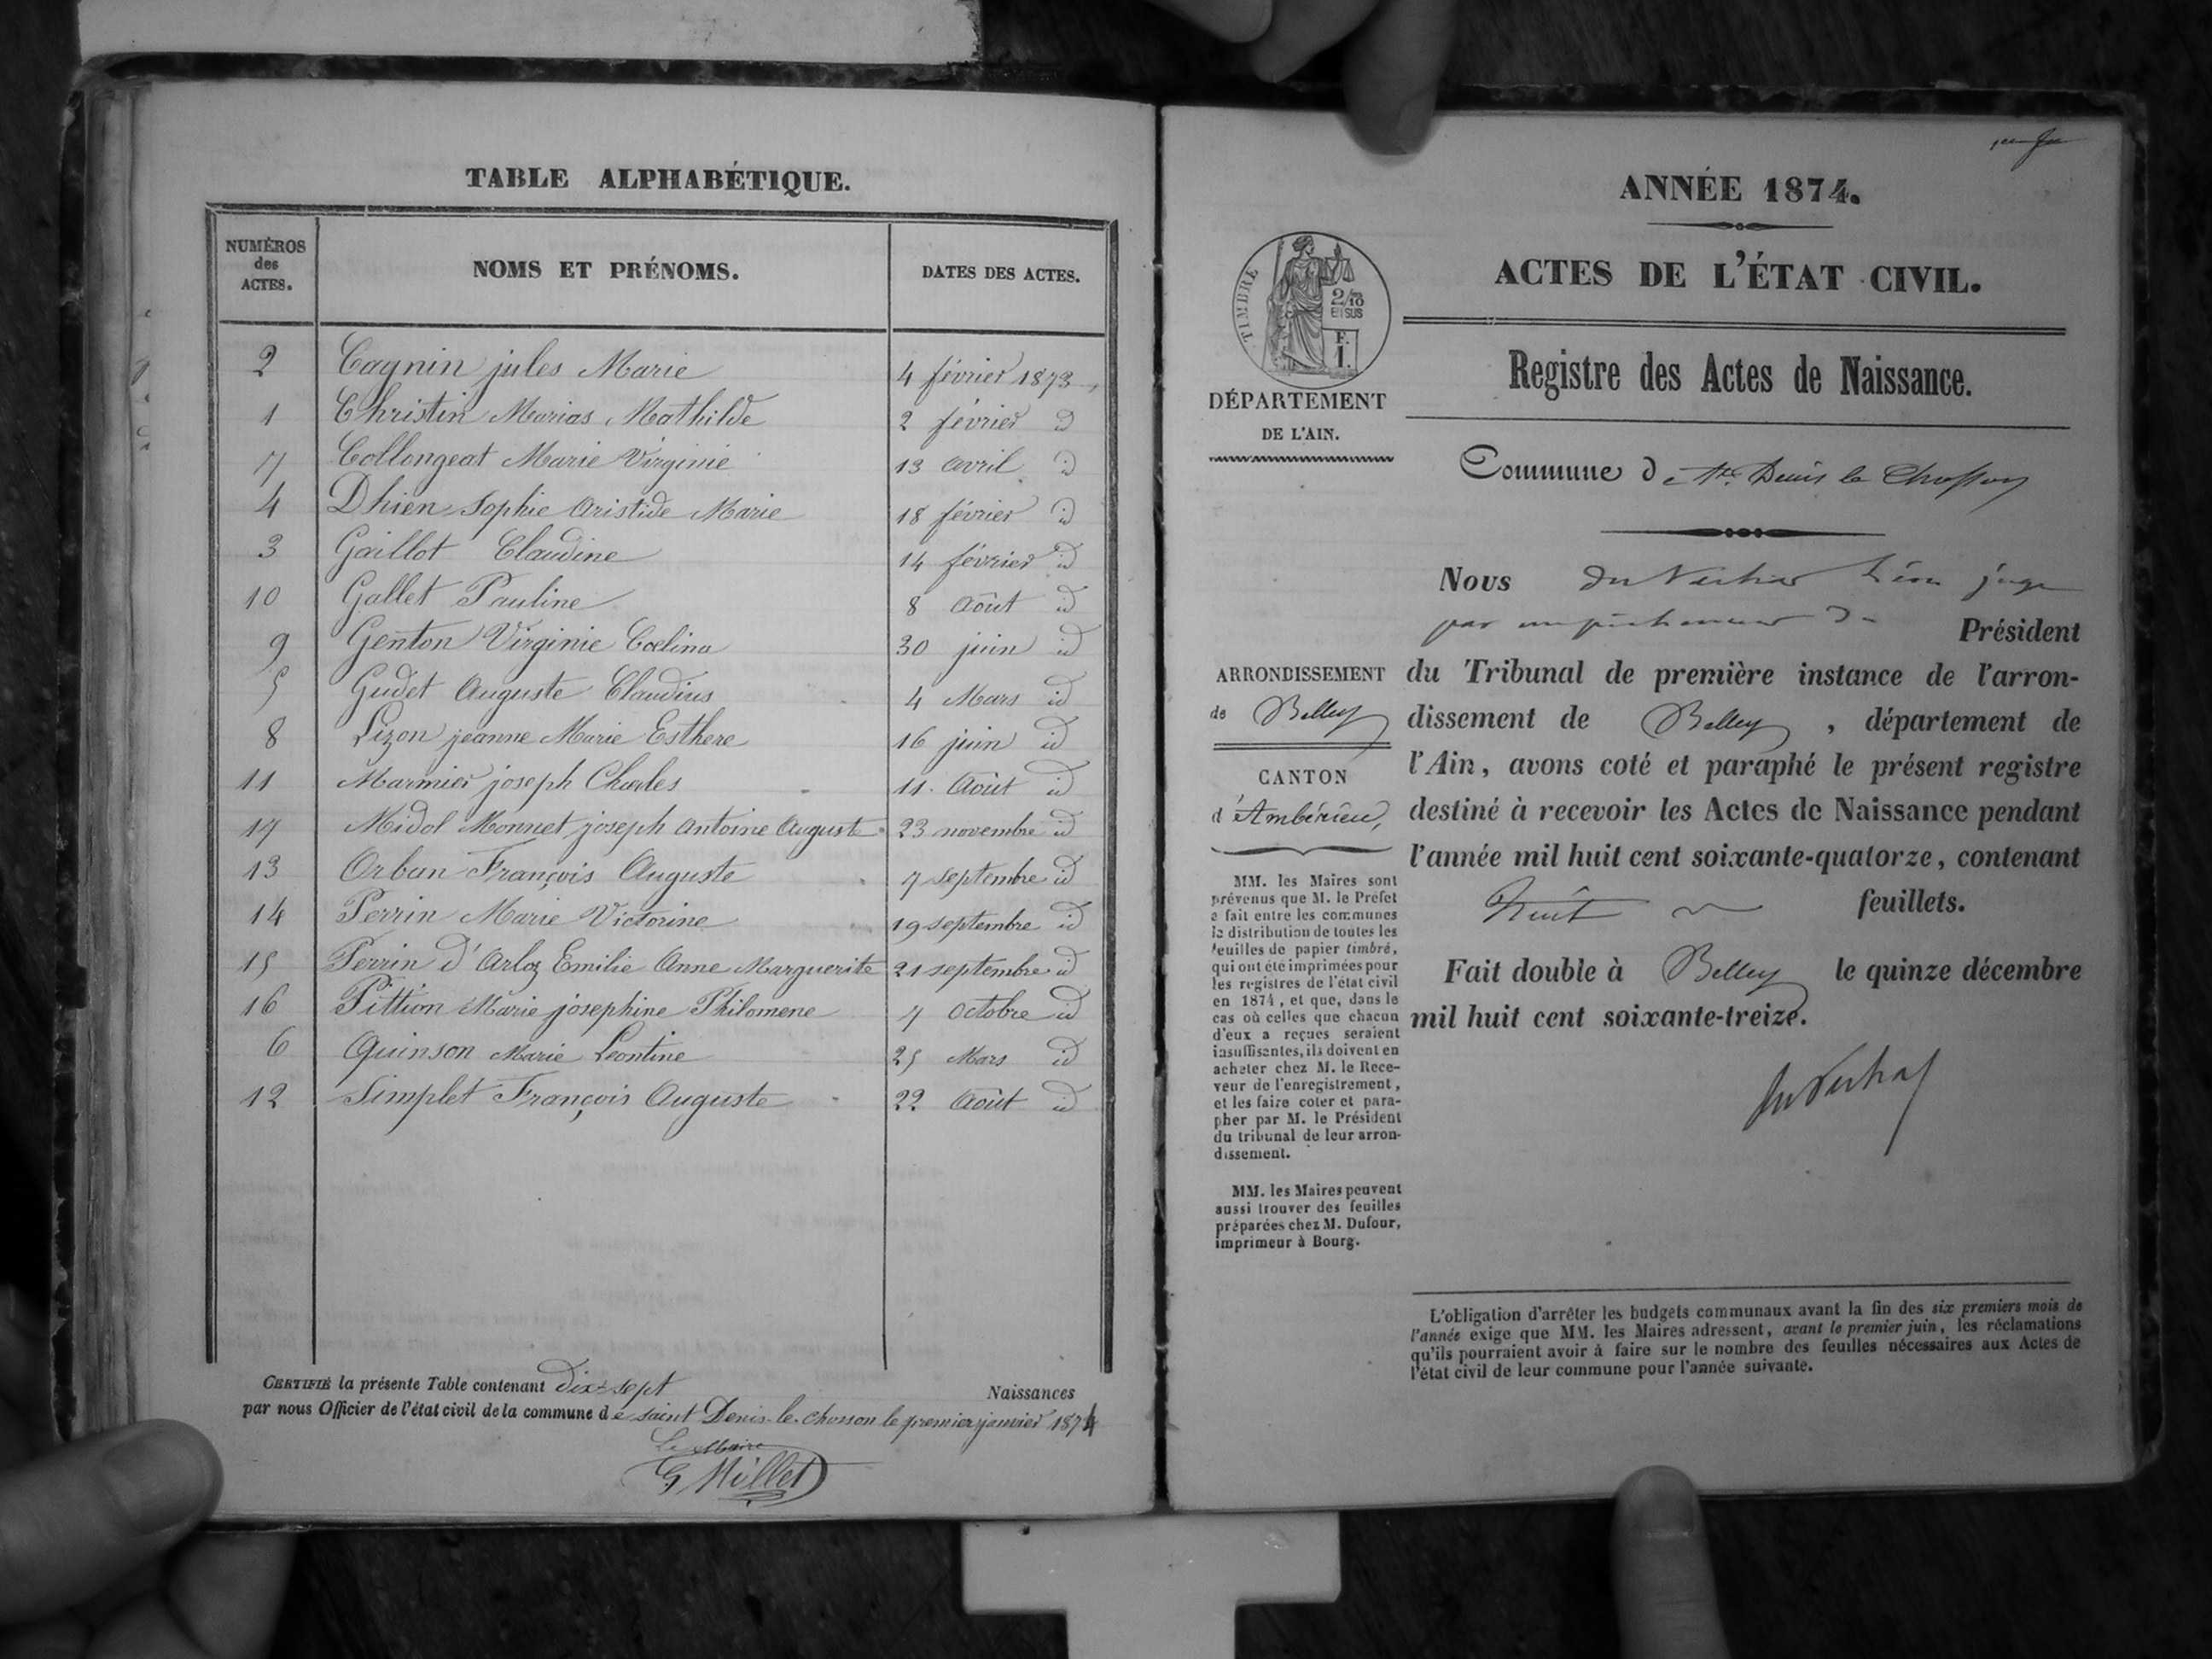 TABLE ALPHABÉTIQUE.
NUMÉROS des ACTES. NOMS ET PRÉNOMS. DATES DES ACTES.
2 Cagnin jules Marie 4 février 1873
1 Christin Marias Mathilde 2 février id
7 Collongeat Marie Virginie 13 avril id
4 Dhien Sophie Aristide Marie 18 février id
3 Gaillot Claudine 14 février id
10 Gallet Pauline 8 Août id
9 Genton Virginie Coelina 30 juin id
5 Gudet Auguste Claudius 4 Mars id
8 Lizon jeanne Marie Esthere 16 juin id
11 Marmier joseph Charles 11 Août id
17 Midol Monnet joseph Antoine Auguste 23 novembre id
13 Orban François Auguste 7 septembre id
14 Perrin Marie Victorine 19 septembre id
15 Perrin d'Arloz Emilie Anne Marguerite 21 septembre id
16 Pittion Marie josephine Philomene 7 Octobre id
6 Quinson Marie Leontine 25 Mars id
12 Simplet François Auguste 22 Août id
CERTIFIÉ la présente Table contenant dix-sept Naissances
par nous Officier de l'état civil de la commune de saint Denis-le-chosson le premier janvier 1874
Le Maire
G Millet
ANNÉE 1874.
ACTES DE L'ÉTAT CIVIL.
TIMBRE
2/10
EN SUS
F.
1.
DÉPARTEMENT
DE L'AIN.
Registre des Actes de Naissance.
Commune de St. Denis le Chosson
Nous du juge
par empêchement du Président
ARRONDISSEMENT
de Belley
CANTON
d'Ambérieu,
du Tribunal de première instance de l'arron-
dissement de Belley, département de
l'Ain, avons coté et paraphé le présent registre
destiné à recevoir les Actes de Naissance pendant
l'année mil huit cent soixante-quatorze, contenant
huit feuillets.
Fait double à Belley le quinze décembre
mil huit cent soixante-treize.
MM. les Maires sont
prévenus que M. le Préfet
a fait entre les communes
la distribution de toutes les
feuilles de papier timbré,
qui ont été imprimées pour
les registres de l'état civil
en 1874, et que, dans le
cas où celles que chacun
d'eux a reçues seraient
insuffisantes, ils doivent en
acheter chez M. le Rece-
veur de l'enregistrement,
et les faire coter et para-
pher par M. le Président
du tribunal de leur arron-
dissement.
MM. les Maires peuvent
aussi trouver des feuilles
préparées chez M. Dufour,
imprimeur à Bourg.
L'obligation d'arrêter les budgets communaux avant la fin des six premiers mois de
l'année exige que MM. les Maires adressent, avant le premier juin, les réclamations
qu'ils pourraient avoir à faire sur le nombre des feuilles nécessaires aux Actes de
l'état civil de leur commune pour l'année suivante.